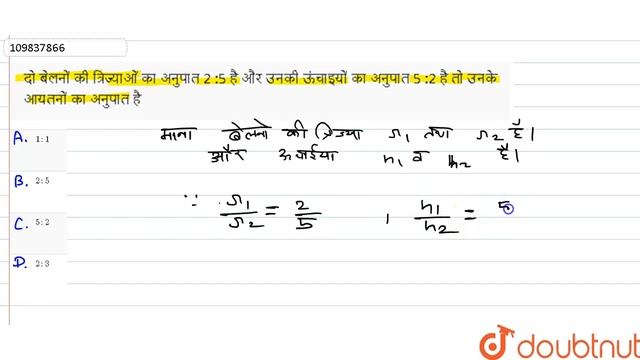 109837866
दो बेलनों की त्रिज्याओं का अनुपात 2 :5 है और उनकी ऊंचाइयों का अनुपात 5 :2 है तो उनके
आयतनों का अनुपात है
A. 1:1
B. 2:5
C. 5:2
D. 2:3
माना बेलनो की त्रिज्या r1 तथा r2 है।
और h1 व h2 है।
∵ r1/r2 = 2/5 , h1/h2 = 5
doubtnut